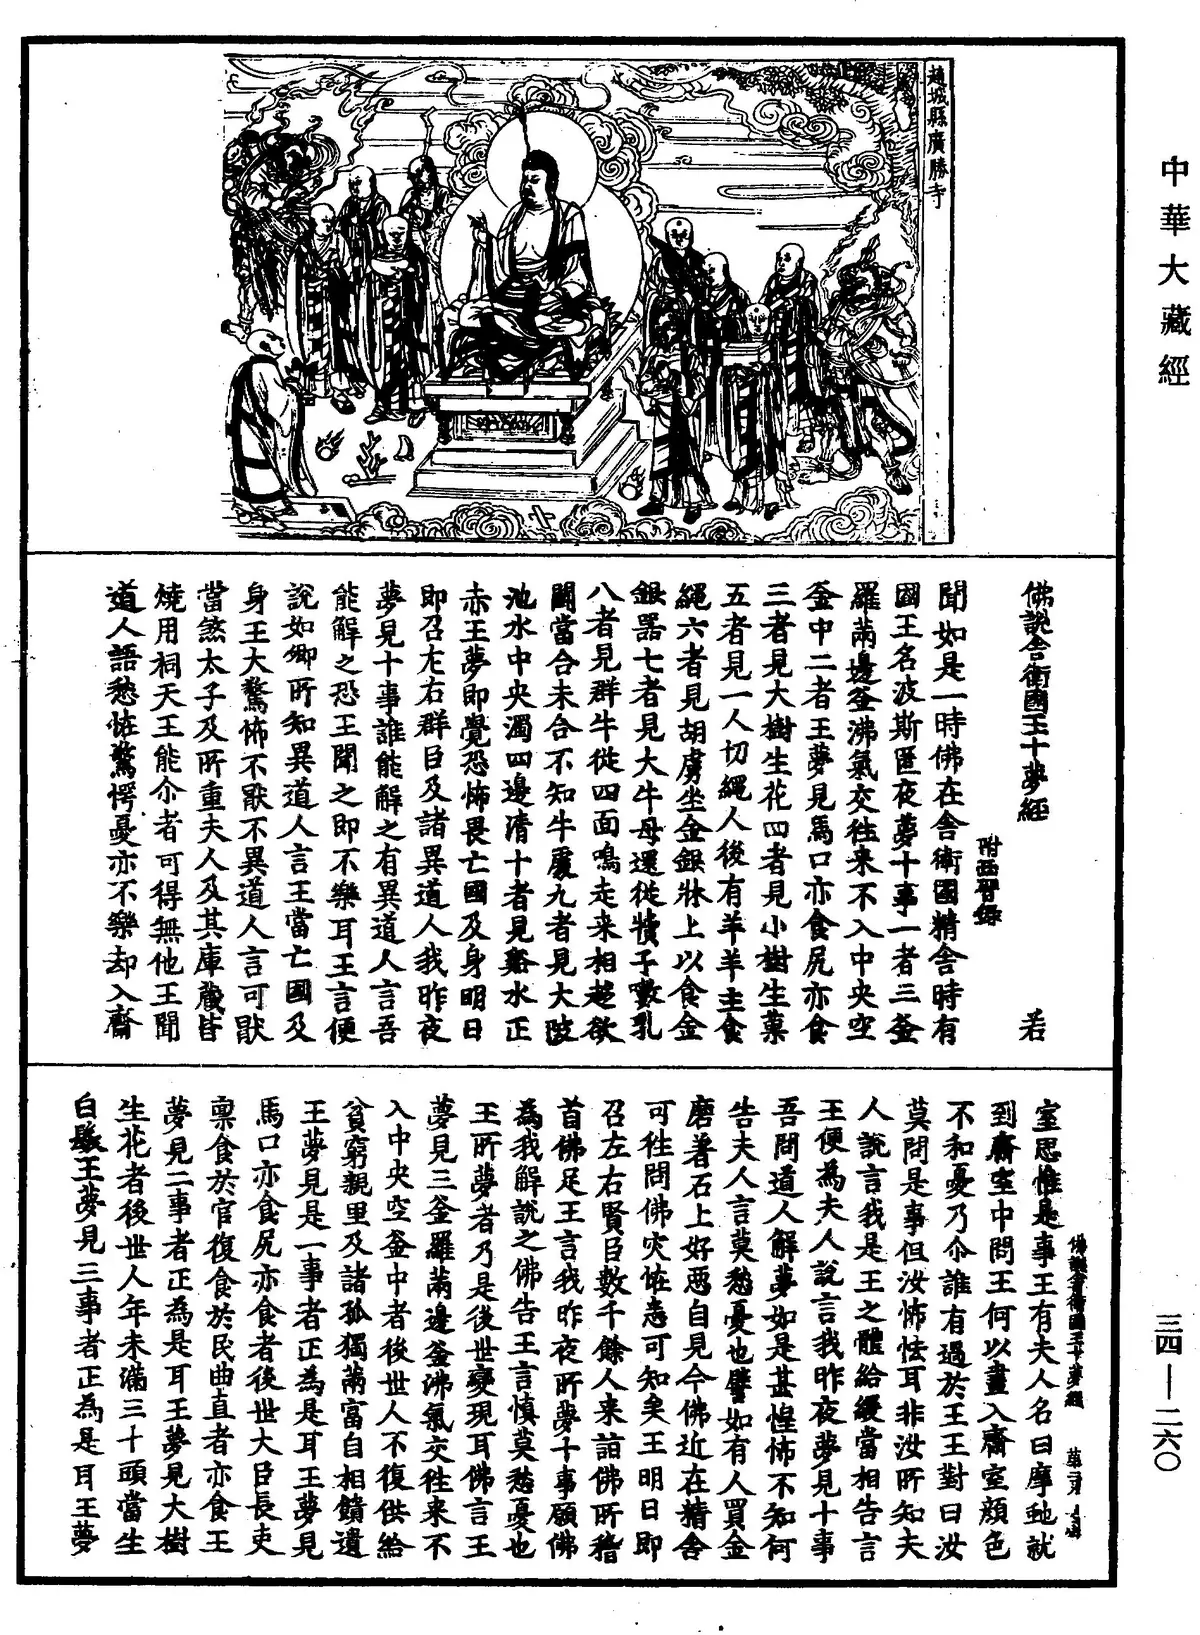 中華大藏經
趙城縣廣勝寺
佛說舍衛國王十夢經
若
附西晉錄
聞如是一時佛在舍衛國精舍時有
國王名波斯匿夜夢十事一者三釜
羅兩邊釜沸氣交往來不入中央空
釜中二者王夢見馬口亦食尻亦食
三者見大樹生花四者見小樹生菓
五者見一人切繩人後有羊羊主食
繩六者見胡虜坐金銀牀上以食金
銀器七者見大牛母還從犢子嗽乳
八者見群牛從四面鳴走来相趍欲
鬪當合未合不知牛處九者見大陂
池水中央濁四邊清十者見谿水正
赤王夢即覺恐怖畏亡國及身明日
即召左右群臣及諸異道人我昨夜
夢見十事誰能解之有異道人言吾
能解之恐王聞之即不樂耳王言便
說如卿所知異道人言王當亡國及
身王大驚怖不猒不異道人言可猒
當煞太子及所重夫人及其庫藏皆
燒用祠天王能尒者可得無他王聞
道人語愁恠驚愕憂亦不樂却入齋
室思惟是事王有夫人名曰摩𡖋就
到齋室中問王何以晝入齋室顏色
不和憂乃尒誰有過於王王對曰汝
莫問是事但汝怖怯耳非汝所知夫
人說言我是王之體給緩當相告言
王便為夫人說言我昨夜夢見十事
吾問道人解夢如是甚惶怖不知何
告夫人言莫愁憂也譬如有人買金
磨著石上好惡自見今佛近在精舍
可往問佛灾恠恚可知矣王明日即
召左右賢臣數千餘人来詣佛所稽
首佛足王言我昨夜所夢十事願佛
為我解說之佛告王言慎莫愁憂也
王所夢者乃是後世變現耳佛言王
夢見三釜羅兩邊釜沸氣交往来不
入中央空釜中者後世人不復供給
貧窮親里及諸孤獨兩富自相饋遺
王夢見是一事者正為是耳王夢見
馬口亦食尻亦食者後世大臣長吏
稟食於官復食於民曲直者亦食王
夢見二事者正為是耳王夢見大樹
生花者後世人年未滿三十頭當生
白髮王夢見三事者正為是耳王夢
佛說舍衛國王十夢經
三四—二六〇